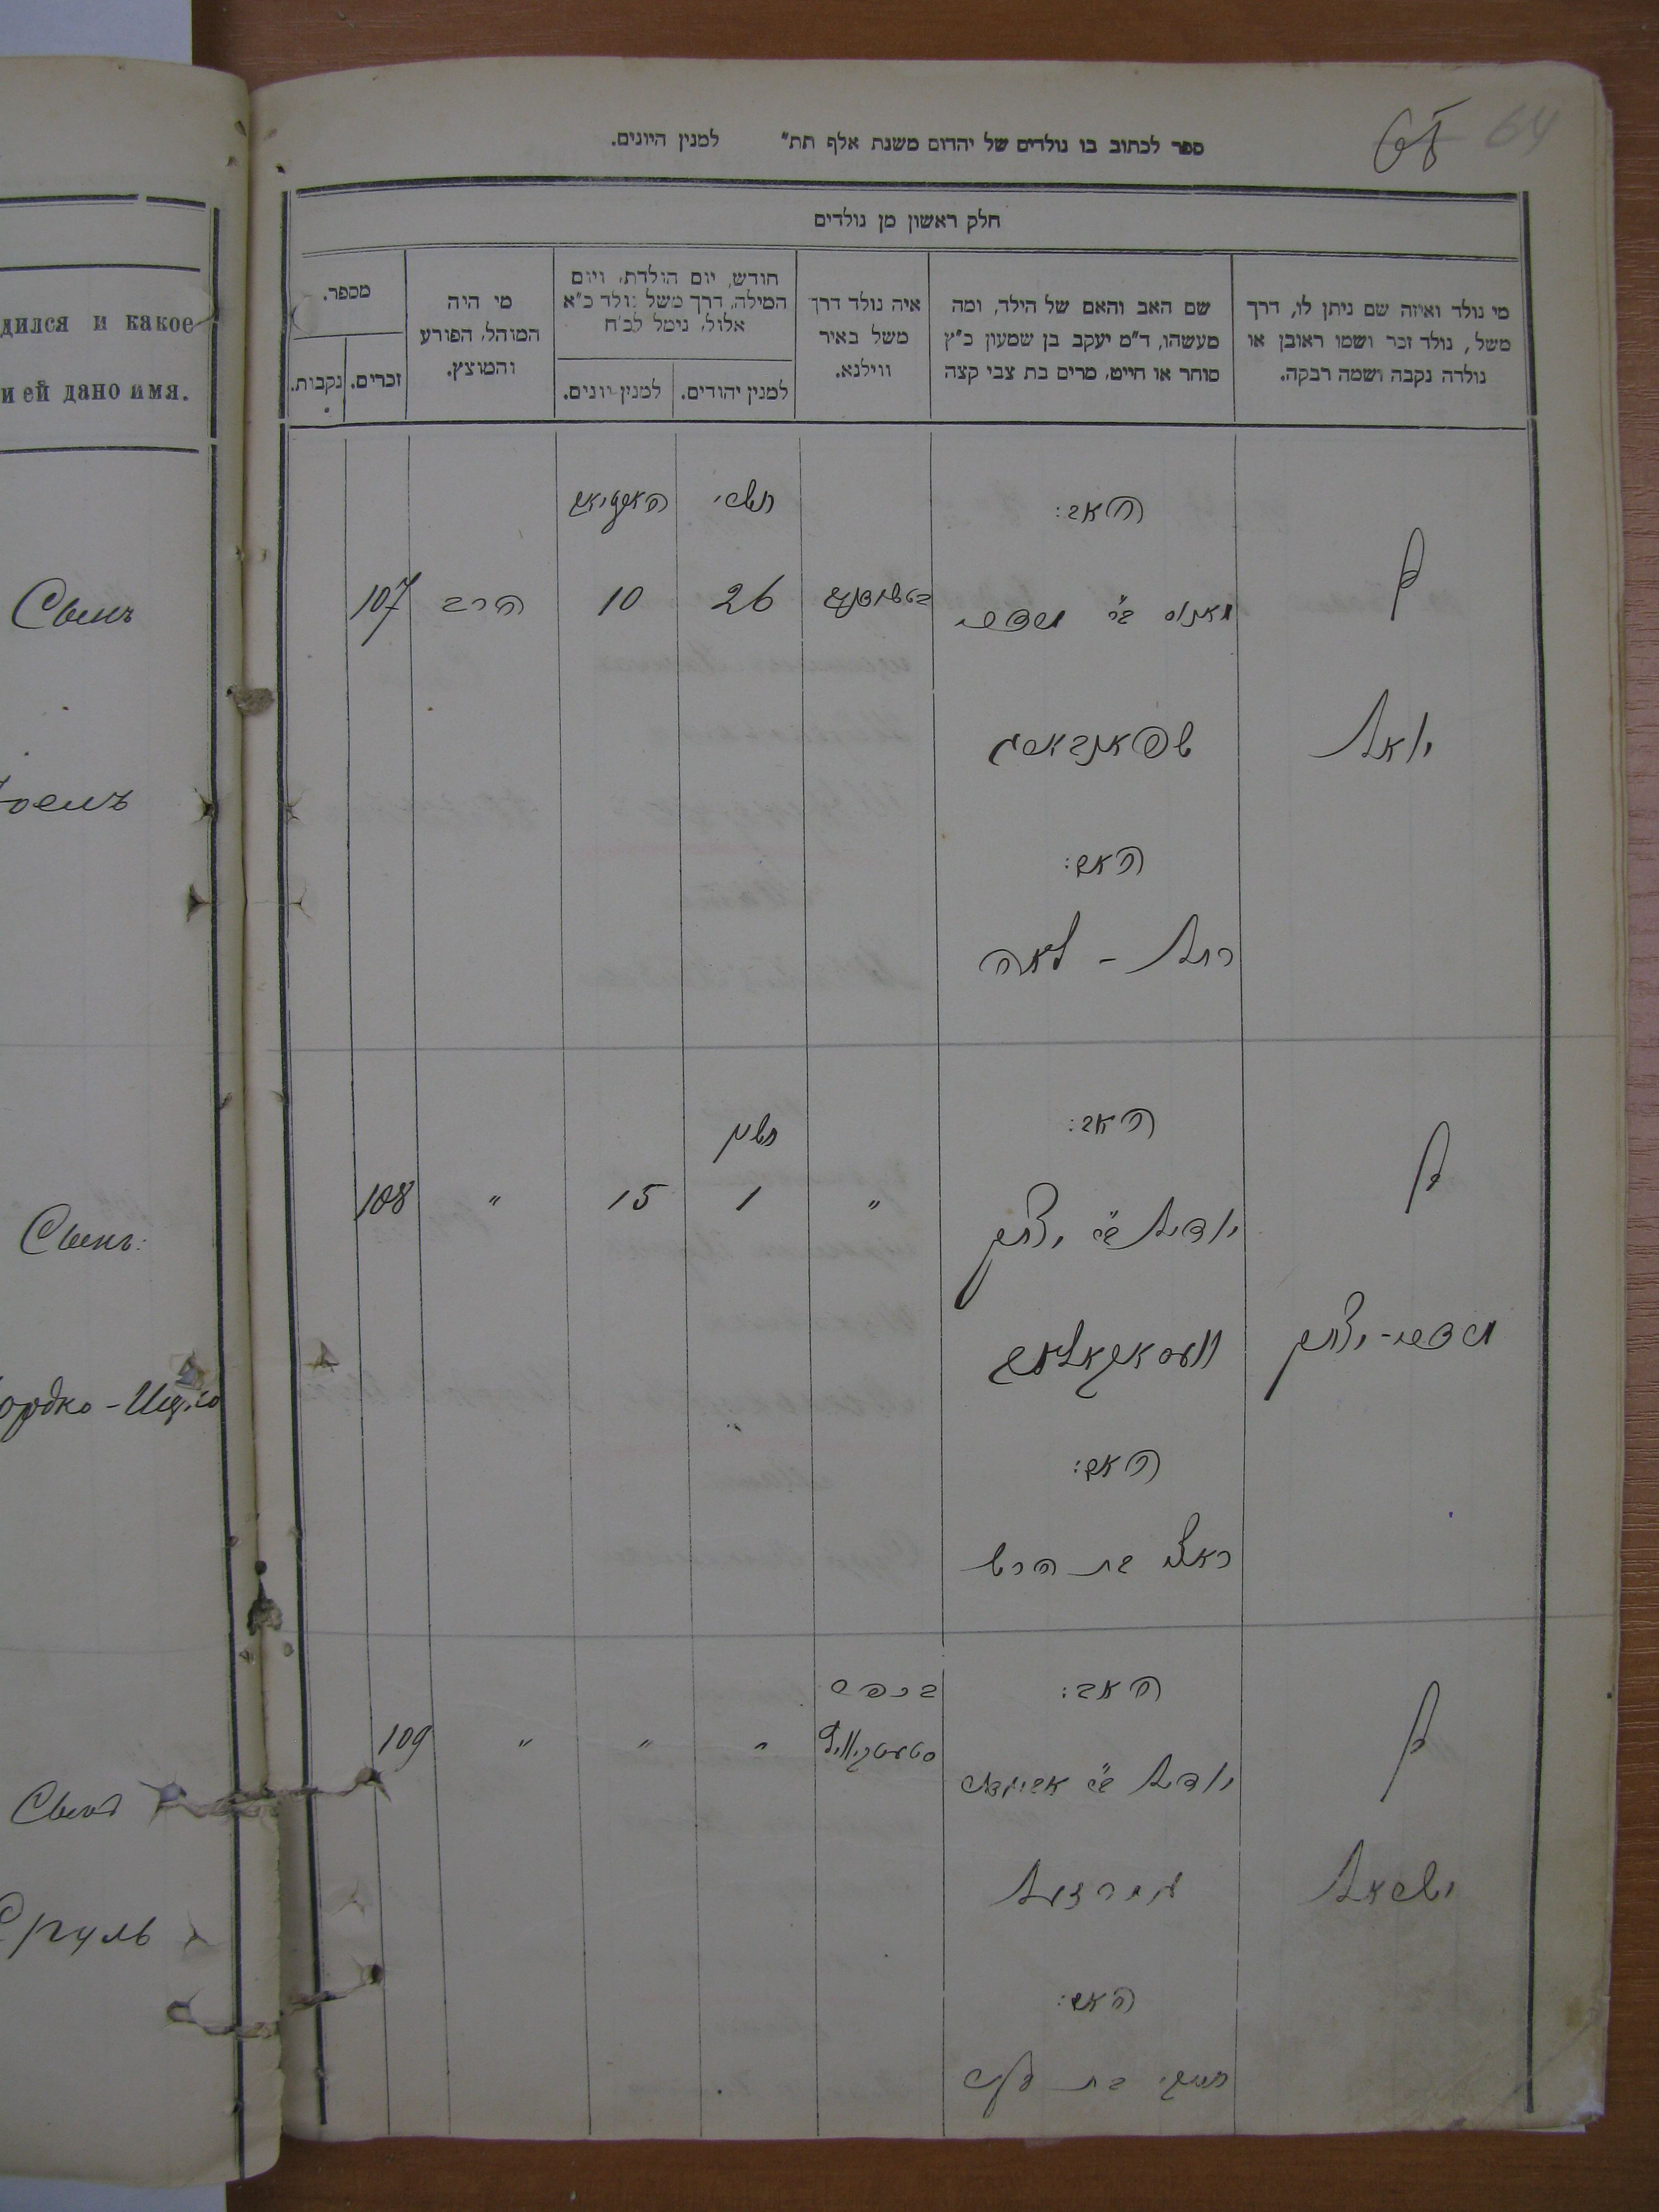 65 64
ספר לכתוב בו נולדים של יהדום משנת אלף תת" למנין היונים.
חלק ראשון מן נולדים
מי נולד ואיזה שם ניתן לו, דרך
משל, נולד זכר ושמו ראובן או
נולדה נקבה ושמה רבקה.
שם האב והאם של הילד, ומה
מעשהו, ד"מ יעקב בן שמעון כ"ץ
סוחר או חייט, מרים בת צבי קצה
איה נולד דרך
משל באיר
ווילנא.
חודש, יום הולדת, ויום
המילה, דרך משל נולד כ"א
אלול, נימל לכ"ח
למנין יהודים.
למנין יונים.
מי היה
המוהל, הפורע
והמוצץ.
מספר.
זכרים.
נקבות.
дился и какое
и ей дано имя.
בן
יואל
האב:
שפאנבארג
האם:
רחל - לאה
תשרי
26
10
הרב
107
Сынъ
בן
מרדכי-יצחק
האב:
יודיל ב"ר יצחק
האם:
בת הרש
"
חשון
1
15
"
108
Сынъ:
ордко-Ицко
בן
ישראל
האב:
יודיל ב"ר
האם:
בת
בכפר
"
"
"
109
Сынъ
Сруль